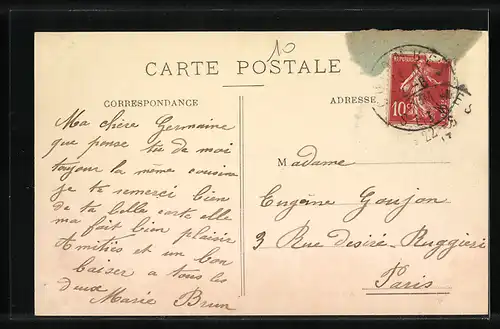 10
CARTE POSTALE
CORRESPONDANCE
ADRESSE
10c
22
Ma chère Germaine
que pense tu de moi
toujour la même cousine
je te remerci bien
de ta belle carte elle
ma fait bien plaisir
Amitiés et un bon
baiser a tous les
deux
Marie Brun
Madame
Eugène Goujon
3 Rue desiré-Ruggieri
Paris